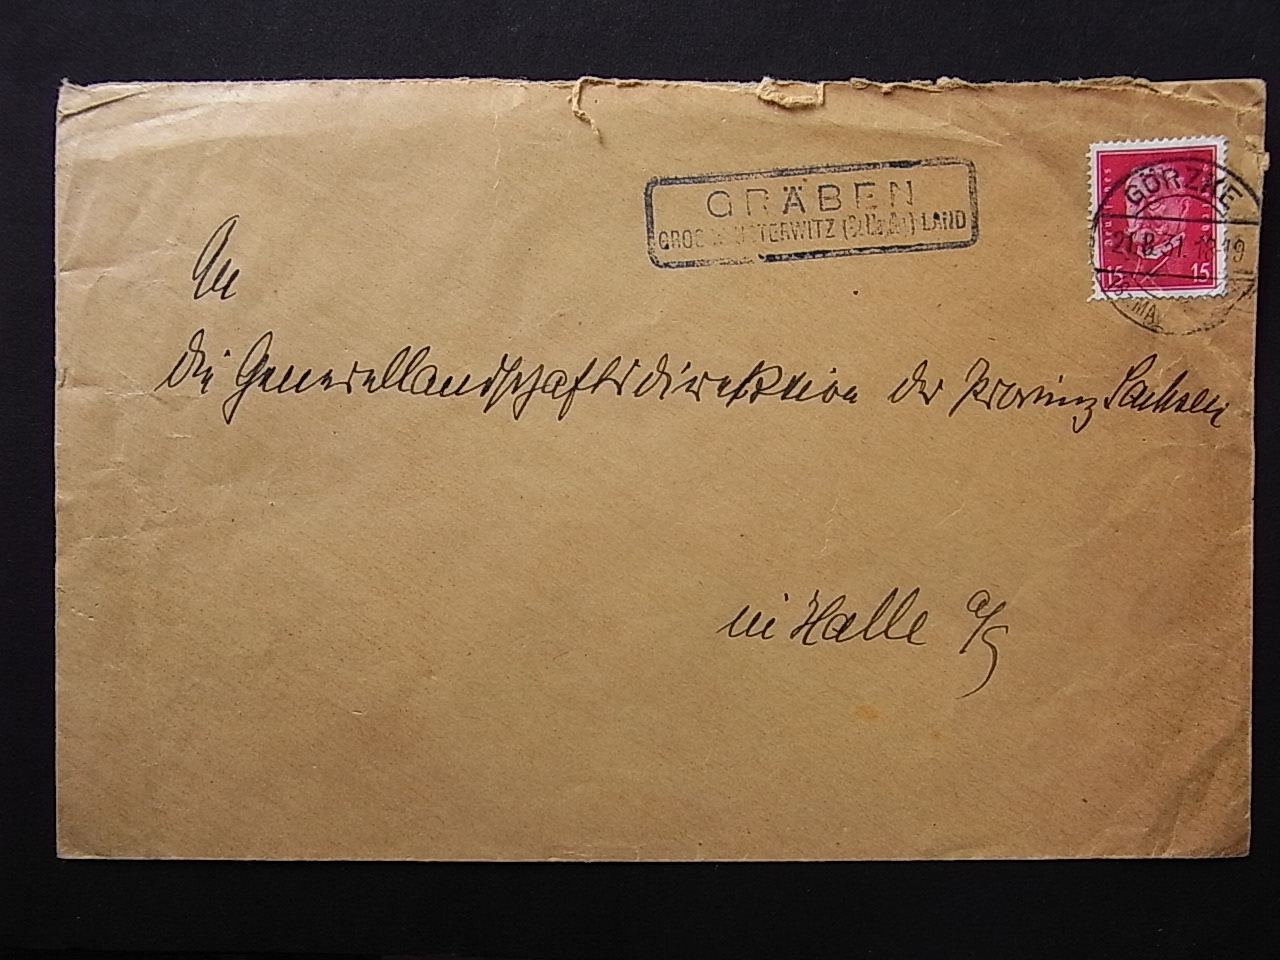 GRÄBEN
LAND
GÖRZKE
21.8.31. 18-19
15 15
An
die Generallandschaftsdirektion der Provinz Sachsen
in Halle a/S